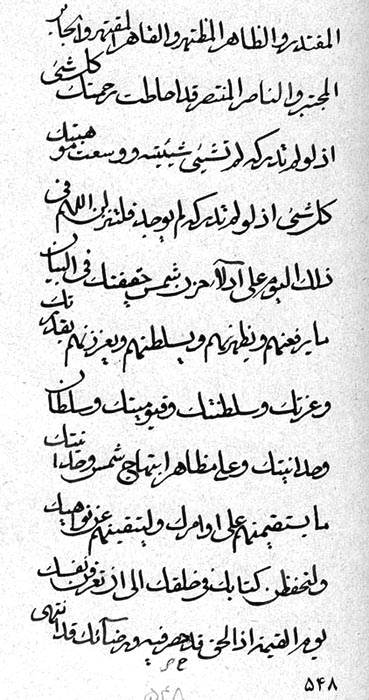 المقتدر والظاهر المظتهر والقاهر المقتهر والجابر
المجتبر والناصر المنتصر قد احاطت رحمتك كل شئ
اذ لو لم تدركه لم تشيئ شيئيته ووسعت موهبتك
كل شئ اذ لو لم تدركه لم يوجد فلتنزلن اللهم في
ذلك اليوم على ادلاء حزن شمس حقيقتك في البيان
ما يرفعنهم ويظهرنهم ويسلطنهم ويعززنهم بقدرتك
وعزتك وسلطنتك وقيوميتك وسلطان
وحدانيتك وعلى مظاهر ابتهاج شمس وحدانيتك
ما يستقيمنهم على اوامرك وليتقينهم عن نواهيك
ولتحفظن كتابك في خلقك الى ان تعرفن نفسك
يوم القيمة اذ الحق قد ظهر فيه ورضائك قد انتهى
۵۴۸
۵۴۸